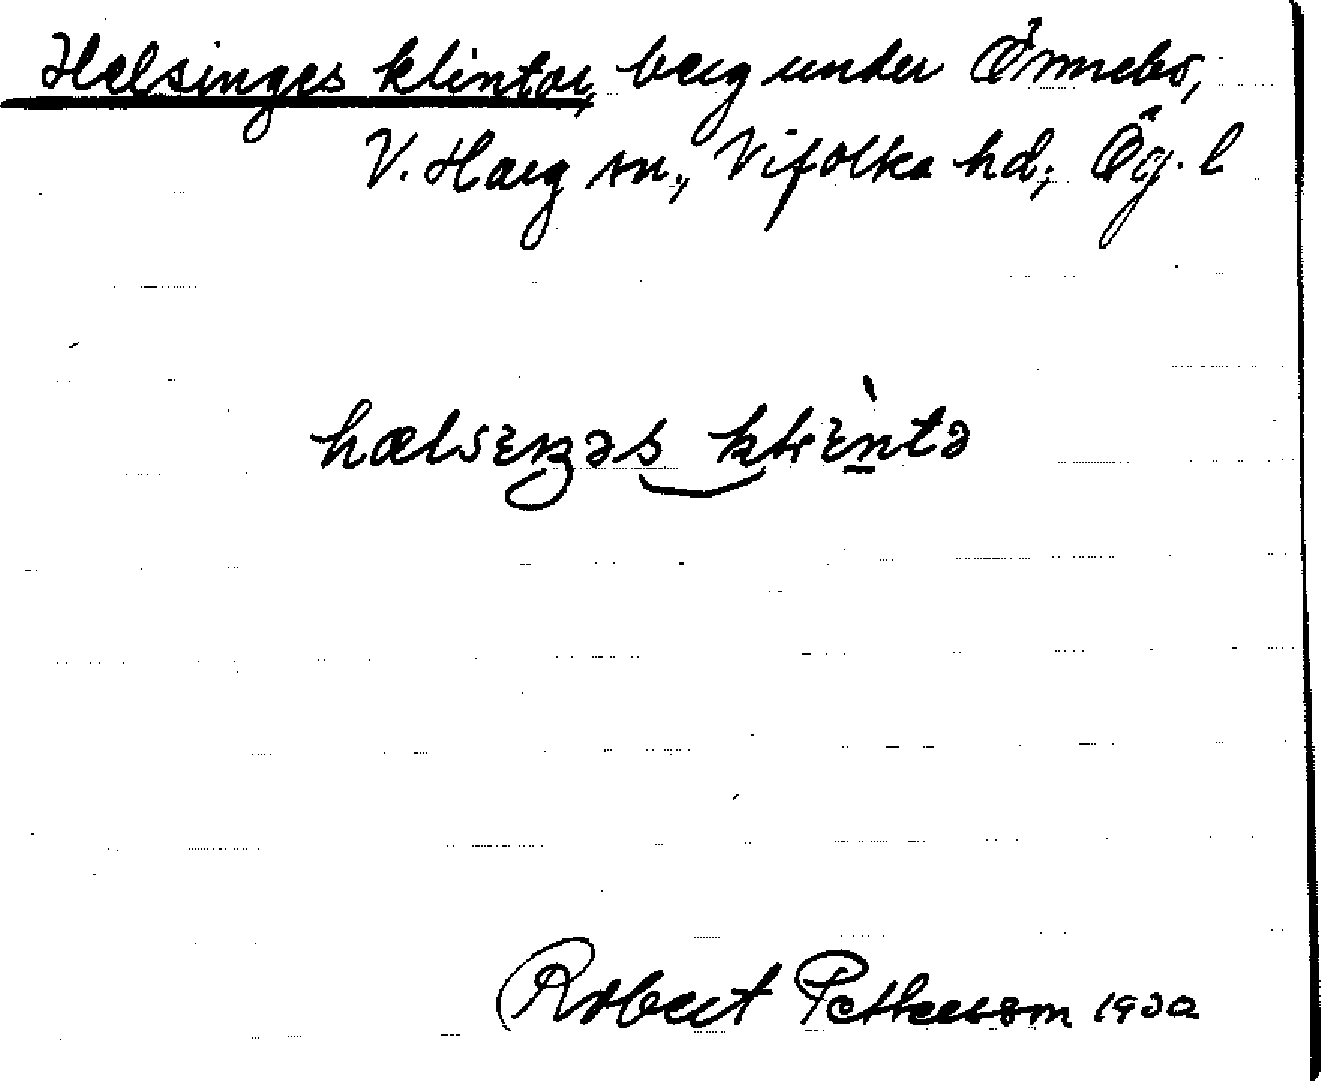 Helsinges klintar, berg under Önnebo,
V. Harg sn., Vifolka hd; Ög. l
hælsɛŋəs klɛ̀ntə
Robert Petterson 1930